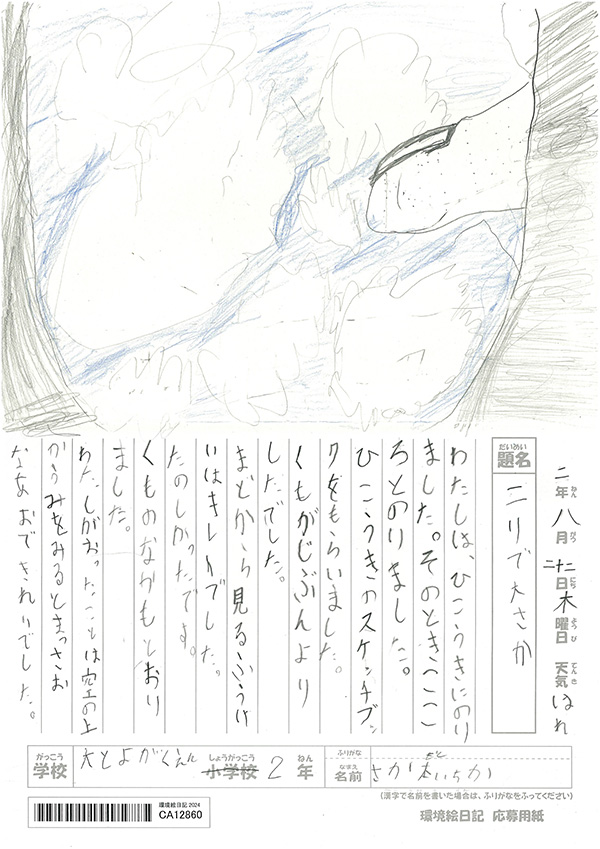 二年八月二十二日木曜日 天気 はれ
ねん がつ にち ようび てんき
だいめい
題名
二りで大さか
わたしは、ひこうきにのり
ました。そのときこここ
ろとのりました。
ひこうきのスケッチブッ
クをもらいました。
くもがじぶんより
したでした。
まどから見るふうけ
いはキレイでした。
たのしかったです。
くものなかもとおり
ました。
わたしがおったことは空の上
からうみをみるとまっさお
なあおできれいでした。
がっこう
学校
大とよがくえん
しょうがっこう
小学校
2
ねん
年
ふりがな
なまえ
名前
さか本いちか
もと
(漢字で名前を書いた場合は、ふりがなをふってください)
環境絵日記 2024
CA12860
環境絵日記 応募用紙